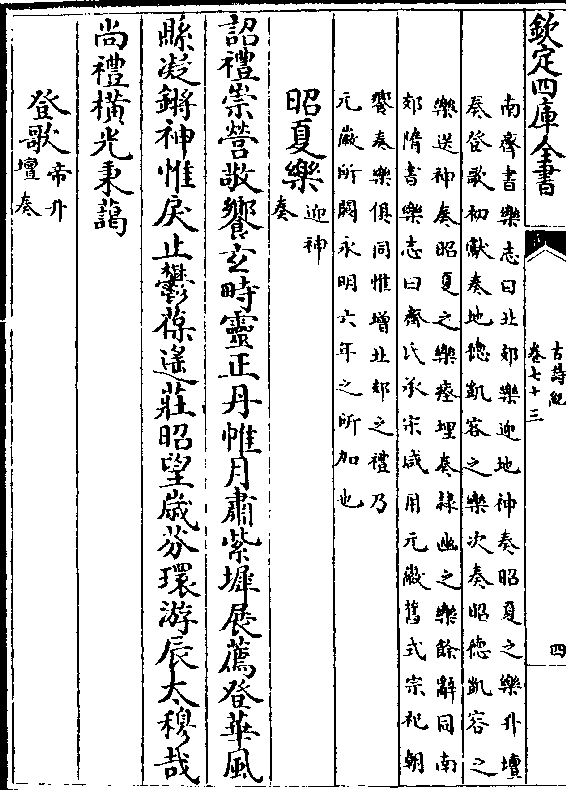 欽定四庫全書
古詩紀
卷七十三
四
南齊書樂志曰北郊樂迎地神奏昭夏之樂升壇
奏登歌初獻奏地德凱容之樂次奏昭德凱容之
樂送神奏昭夏之樂瘞埋奏隸幽之樂餘辭同南
郊隋書樂志曰齊氏承宋咸用元徽舊式宗祀朝
饗奏樂俱同惟增北郊之禮乃
元徽所闕永明六年之所加也
昭夏樂迎神奏
詔禮崇營敬饗玄畤靈正丹帷月肅紫墀展薦登華風
縣凝鏘神惟戾止鬱葆遙莊昭望歲芬環游辰太穆哉
尚禮橫光秉藹
登歌帝升壇奏